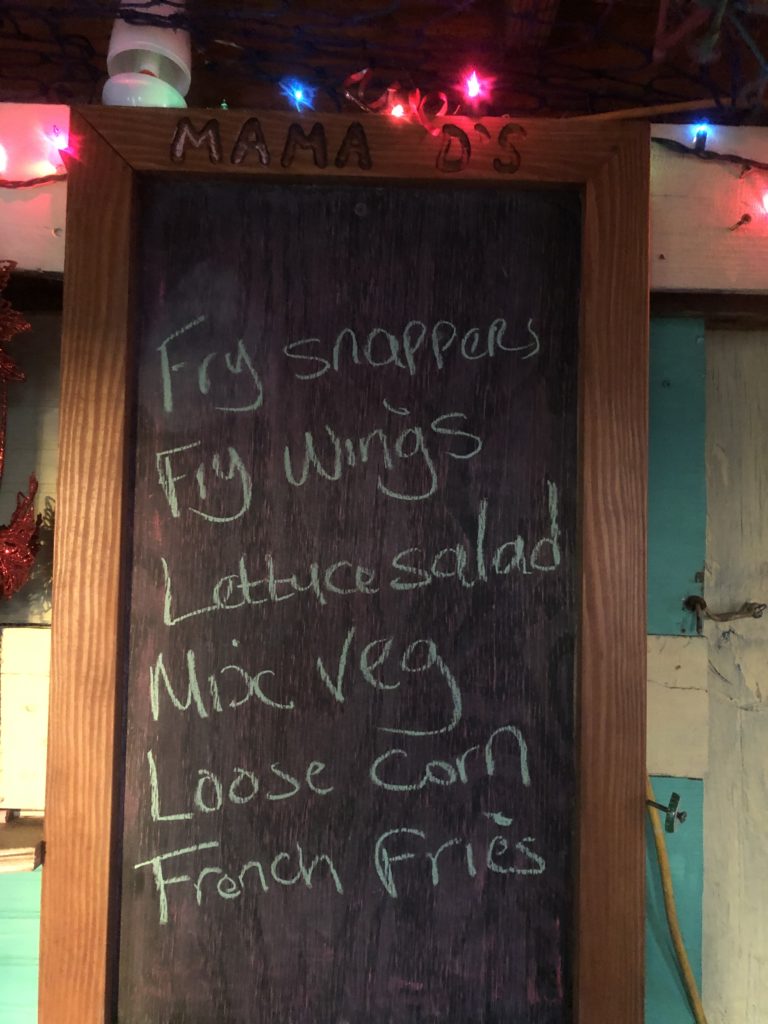 MAMA D'S
Fry snappers
Fry wings
Lettuce salad
Mix veg
Loose corn
French Fries